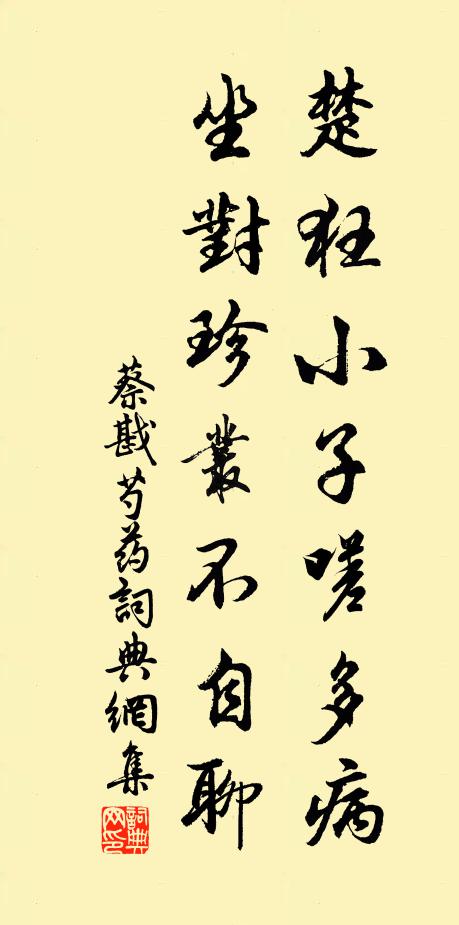 楚狂小子嗟多病
坐對珍叢不自聊
蔡戡芍药詞典網集
詞典網印